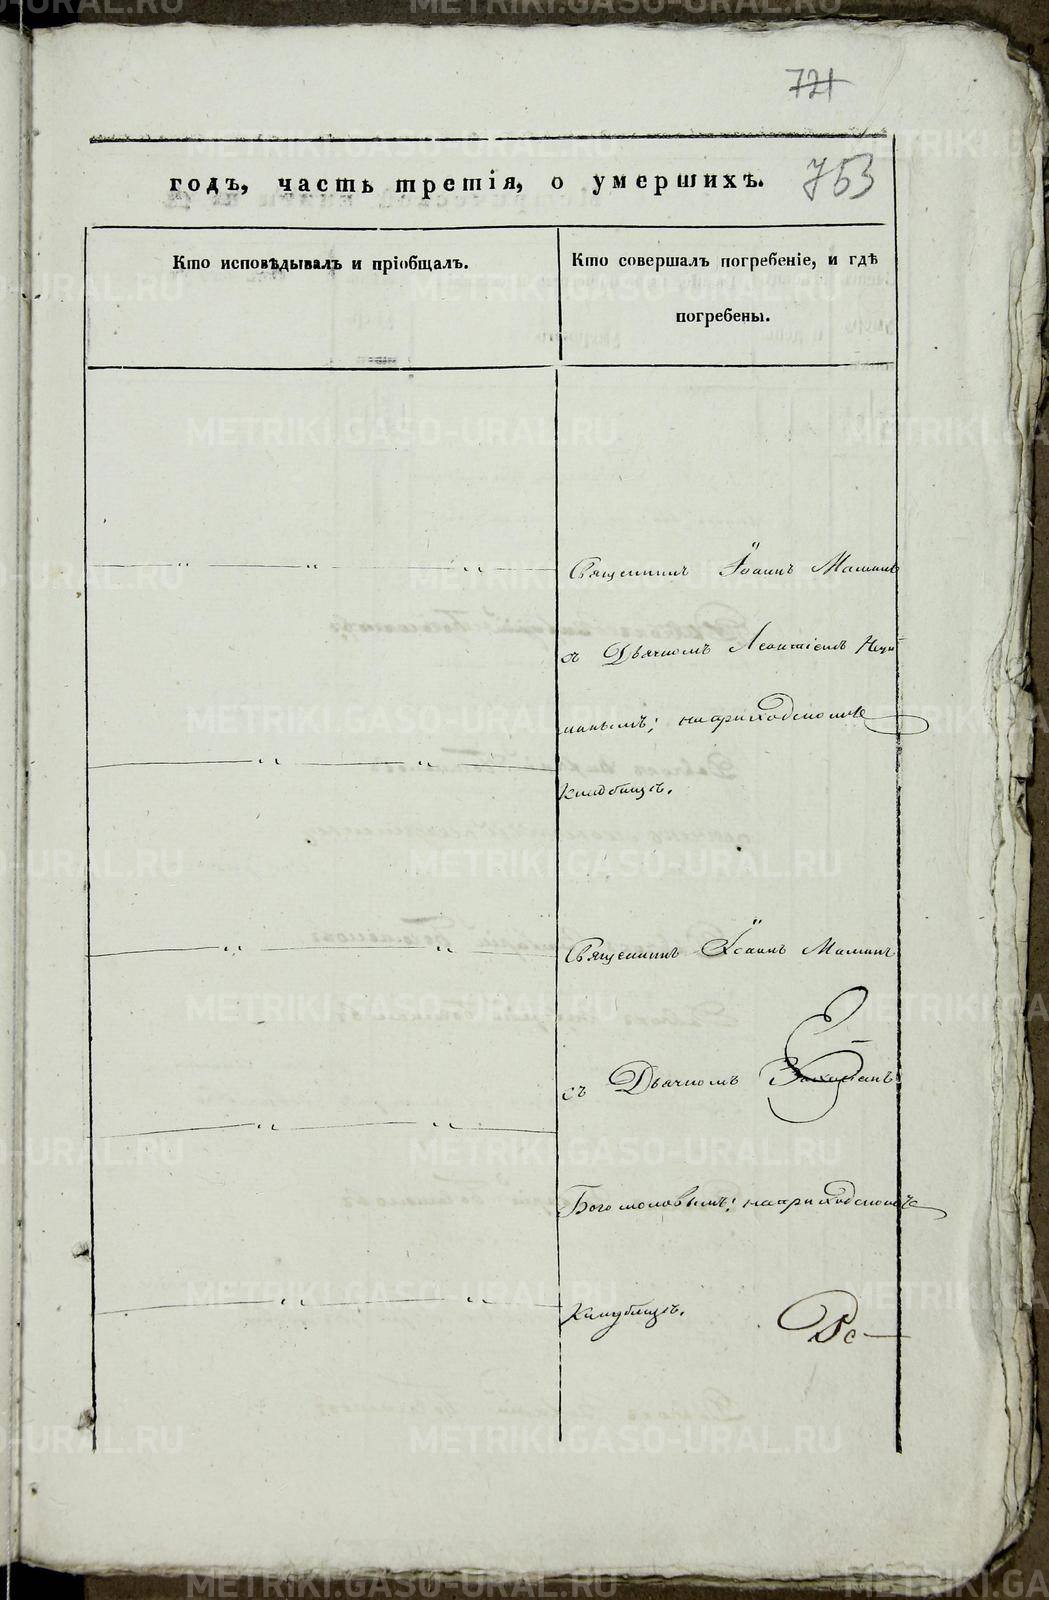 721
годъ, часть третія, о умершихъ. 753
Кто исповѣдывалъ и пріобщалъ.
Кто совершалъ погребеніе, и гдѣ
погребены.
Священникъ Іоаннъ Маминъ
съ Дьячкомъ Леонтіемъ
на приходскомъ
кладбищѣ.
Священникъ Іоаннъ Маминъ
съ Дьячкомъ
Богомоловымъ; на приходскомъ
кладбищѣ.
METRIKI.GASO-URAL.RU